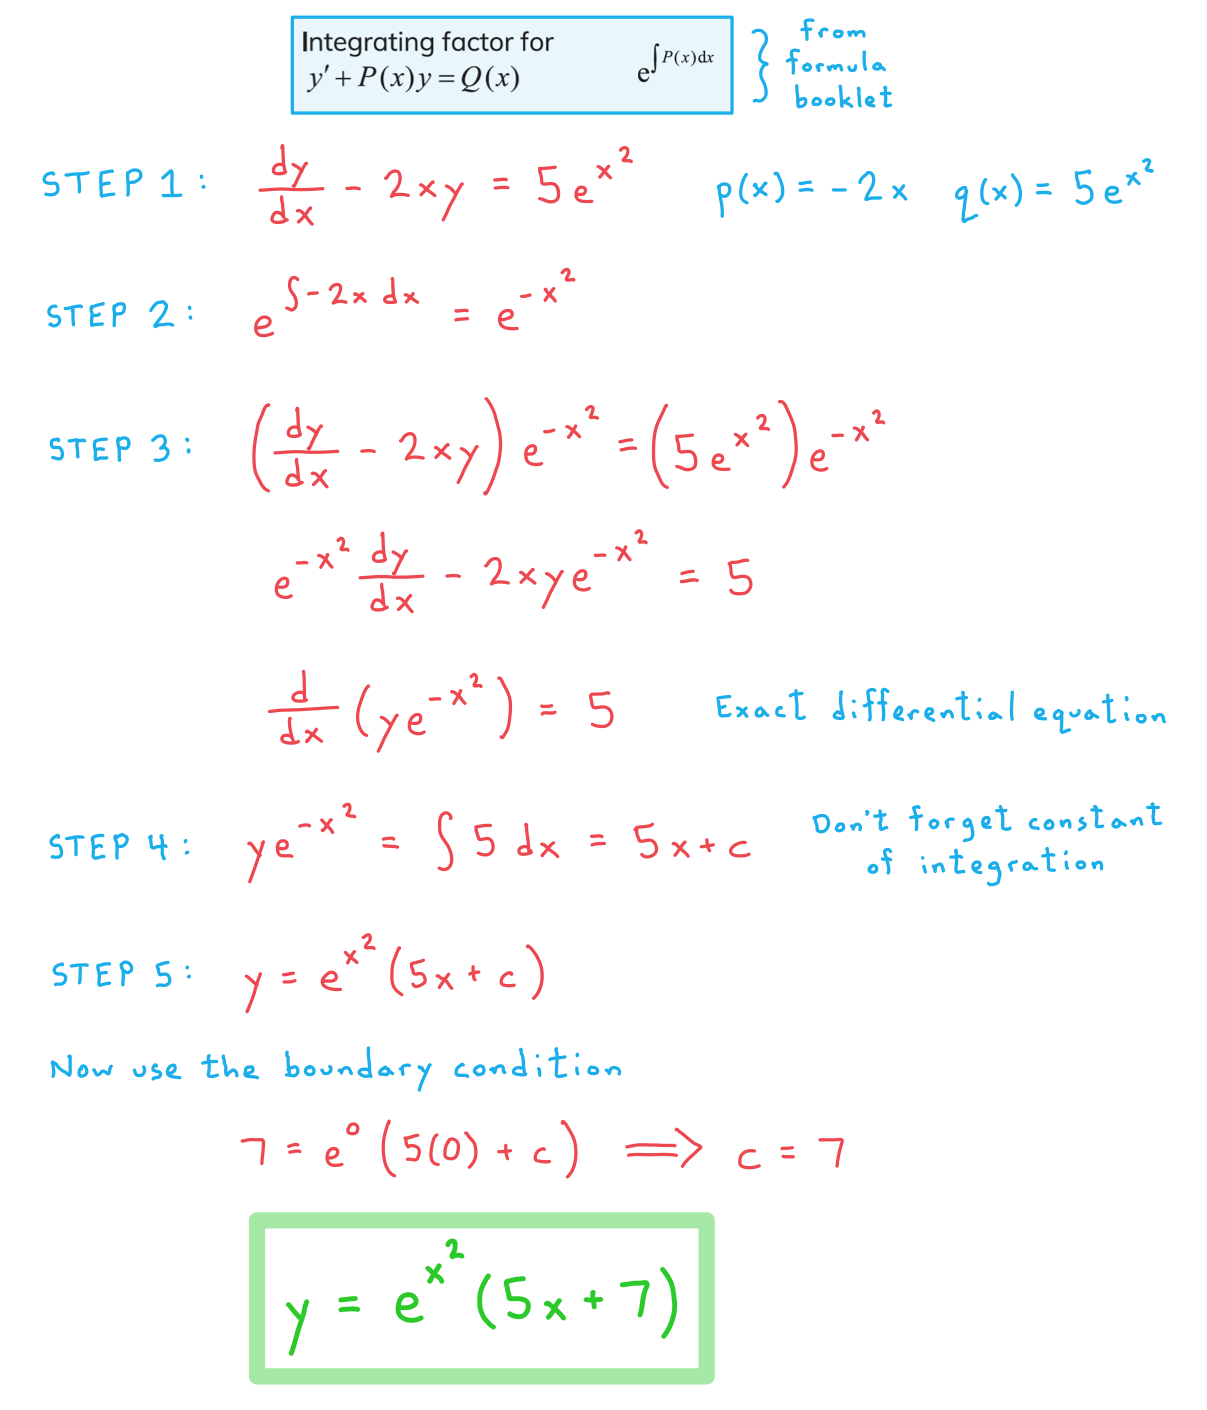 Integrating factor for
y′ + P(x)y = Q(x)   e^{∫P(x)dx}
} from
formula
booklet
STEP 1: dy/dx - 2xy = 5e^{x²}   p(x) = -2x   q(x) = 5e^{x²}
STEP 2: e^{∫-2x dx} = e^{-x²}
STEP 3: (dy/dx - 2xy) e^{-x²} = (5e^{x²}) e^{-x²}
e^{-x²} dy/dx - 2xye^{-x²} = 5
d/dx (ye^{-x²}) = 5   Exact differential equation
STEP 4: ye^{-x²} = ∫ 5 dx = 5x + c   Don't forget constant
of integration
STEP 5: y = e^{x²} (5x + c)
Now use the boundary condition
7 = e⁰ (5(0) + c) ⟹ c = 7
y = e^{x²} (5x + 7)